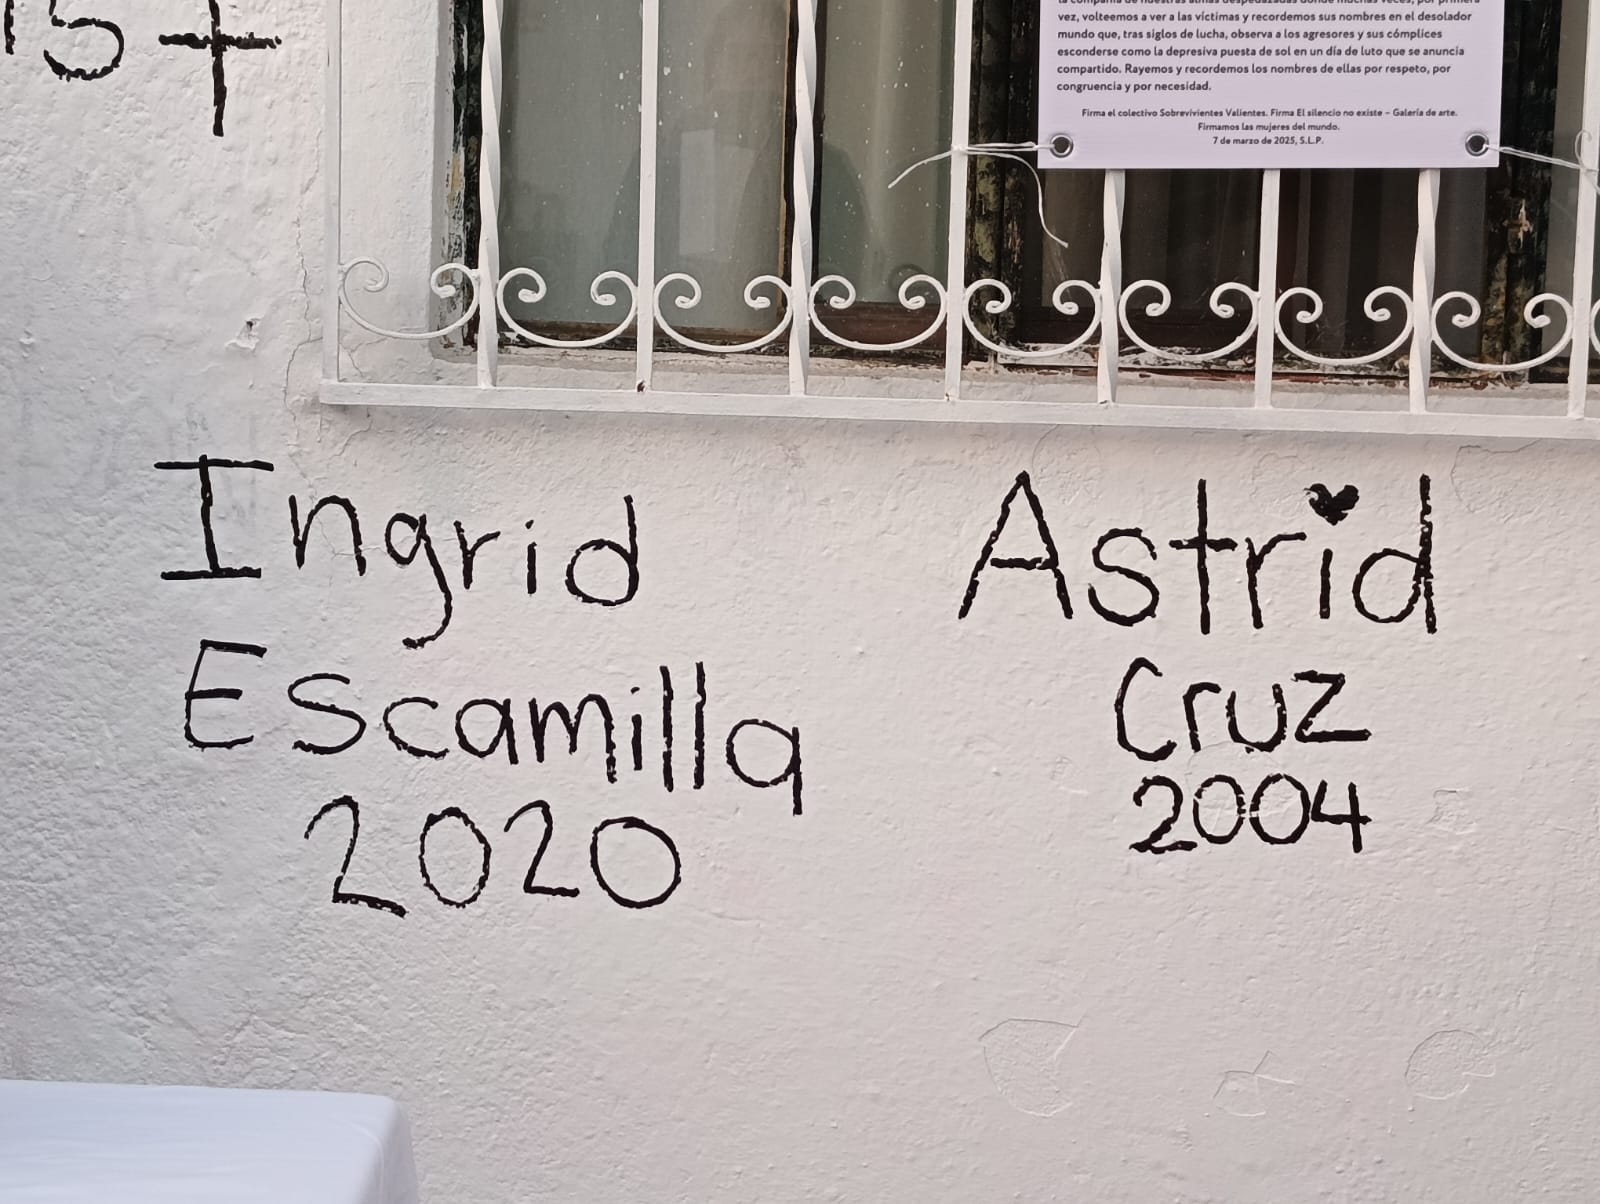 15 +
la compañía de nuestras almas despedazadas donde muchas veces, por primera
vez, volteemos a ver a las víctimas y recordemos sus nombres en el desolador
mundo que, tras siglos de lucha, observa a los agresores y sus cómplices
esconderse como la depresiva puesta de sol en un día de luto que se anuncia
compartido. Rayemos y recordemos los nombres de ellas por respeto, por
congruencia y por necesidad.
Firma el colectivo Sobrevivientes Valientes. Firma El silencio no existe – Galería de arte.
Firmamos las mujeres del mundo.
7 de marzo de 2025, S.L.P.
Ingrid
Escamilla
2020
Astrid
Cruz
2004